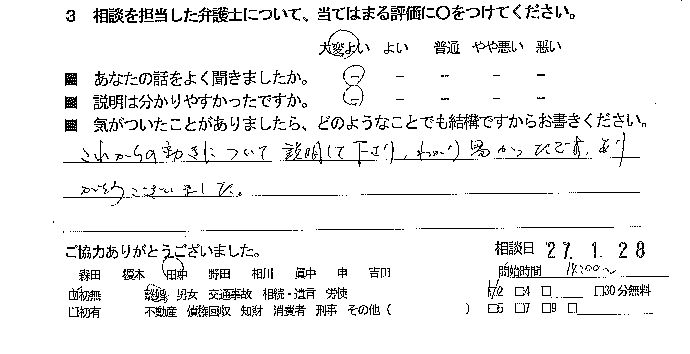 3 相談を担当した弁護士について、当てはまる評価に〇をつけてください。
大変よい よい 普通 やや悪い 悪い
■ あなたの話をよく聞きましたか。 － － － － －
■ 説明は分かりやすかったですか。 － － － － －
■ 気がついたことがありましたら、どのようなことでも結構ですからお書きください。
これからの動きについて説明して下さり、わかり易かったです。あり
がとうございました。
ご協力ありがとうございました。
相談日 27.1.28
森田 榎木 田中 野田 相川 眞中 申 吉田
開始時間 14:00～
初無 男女 交通事故 相続・遺言 労使
□2 □4 □ □30分無料
□初有 不動産 債権回収 知財 消費者 刑事 その他 ( )
□5 □7 □9 □